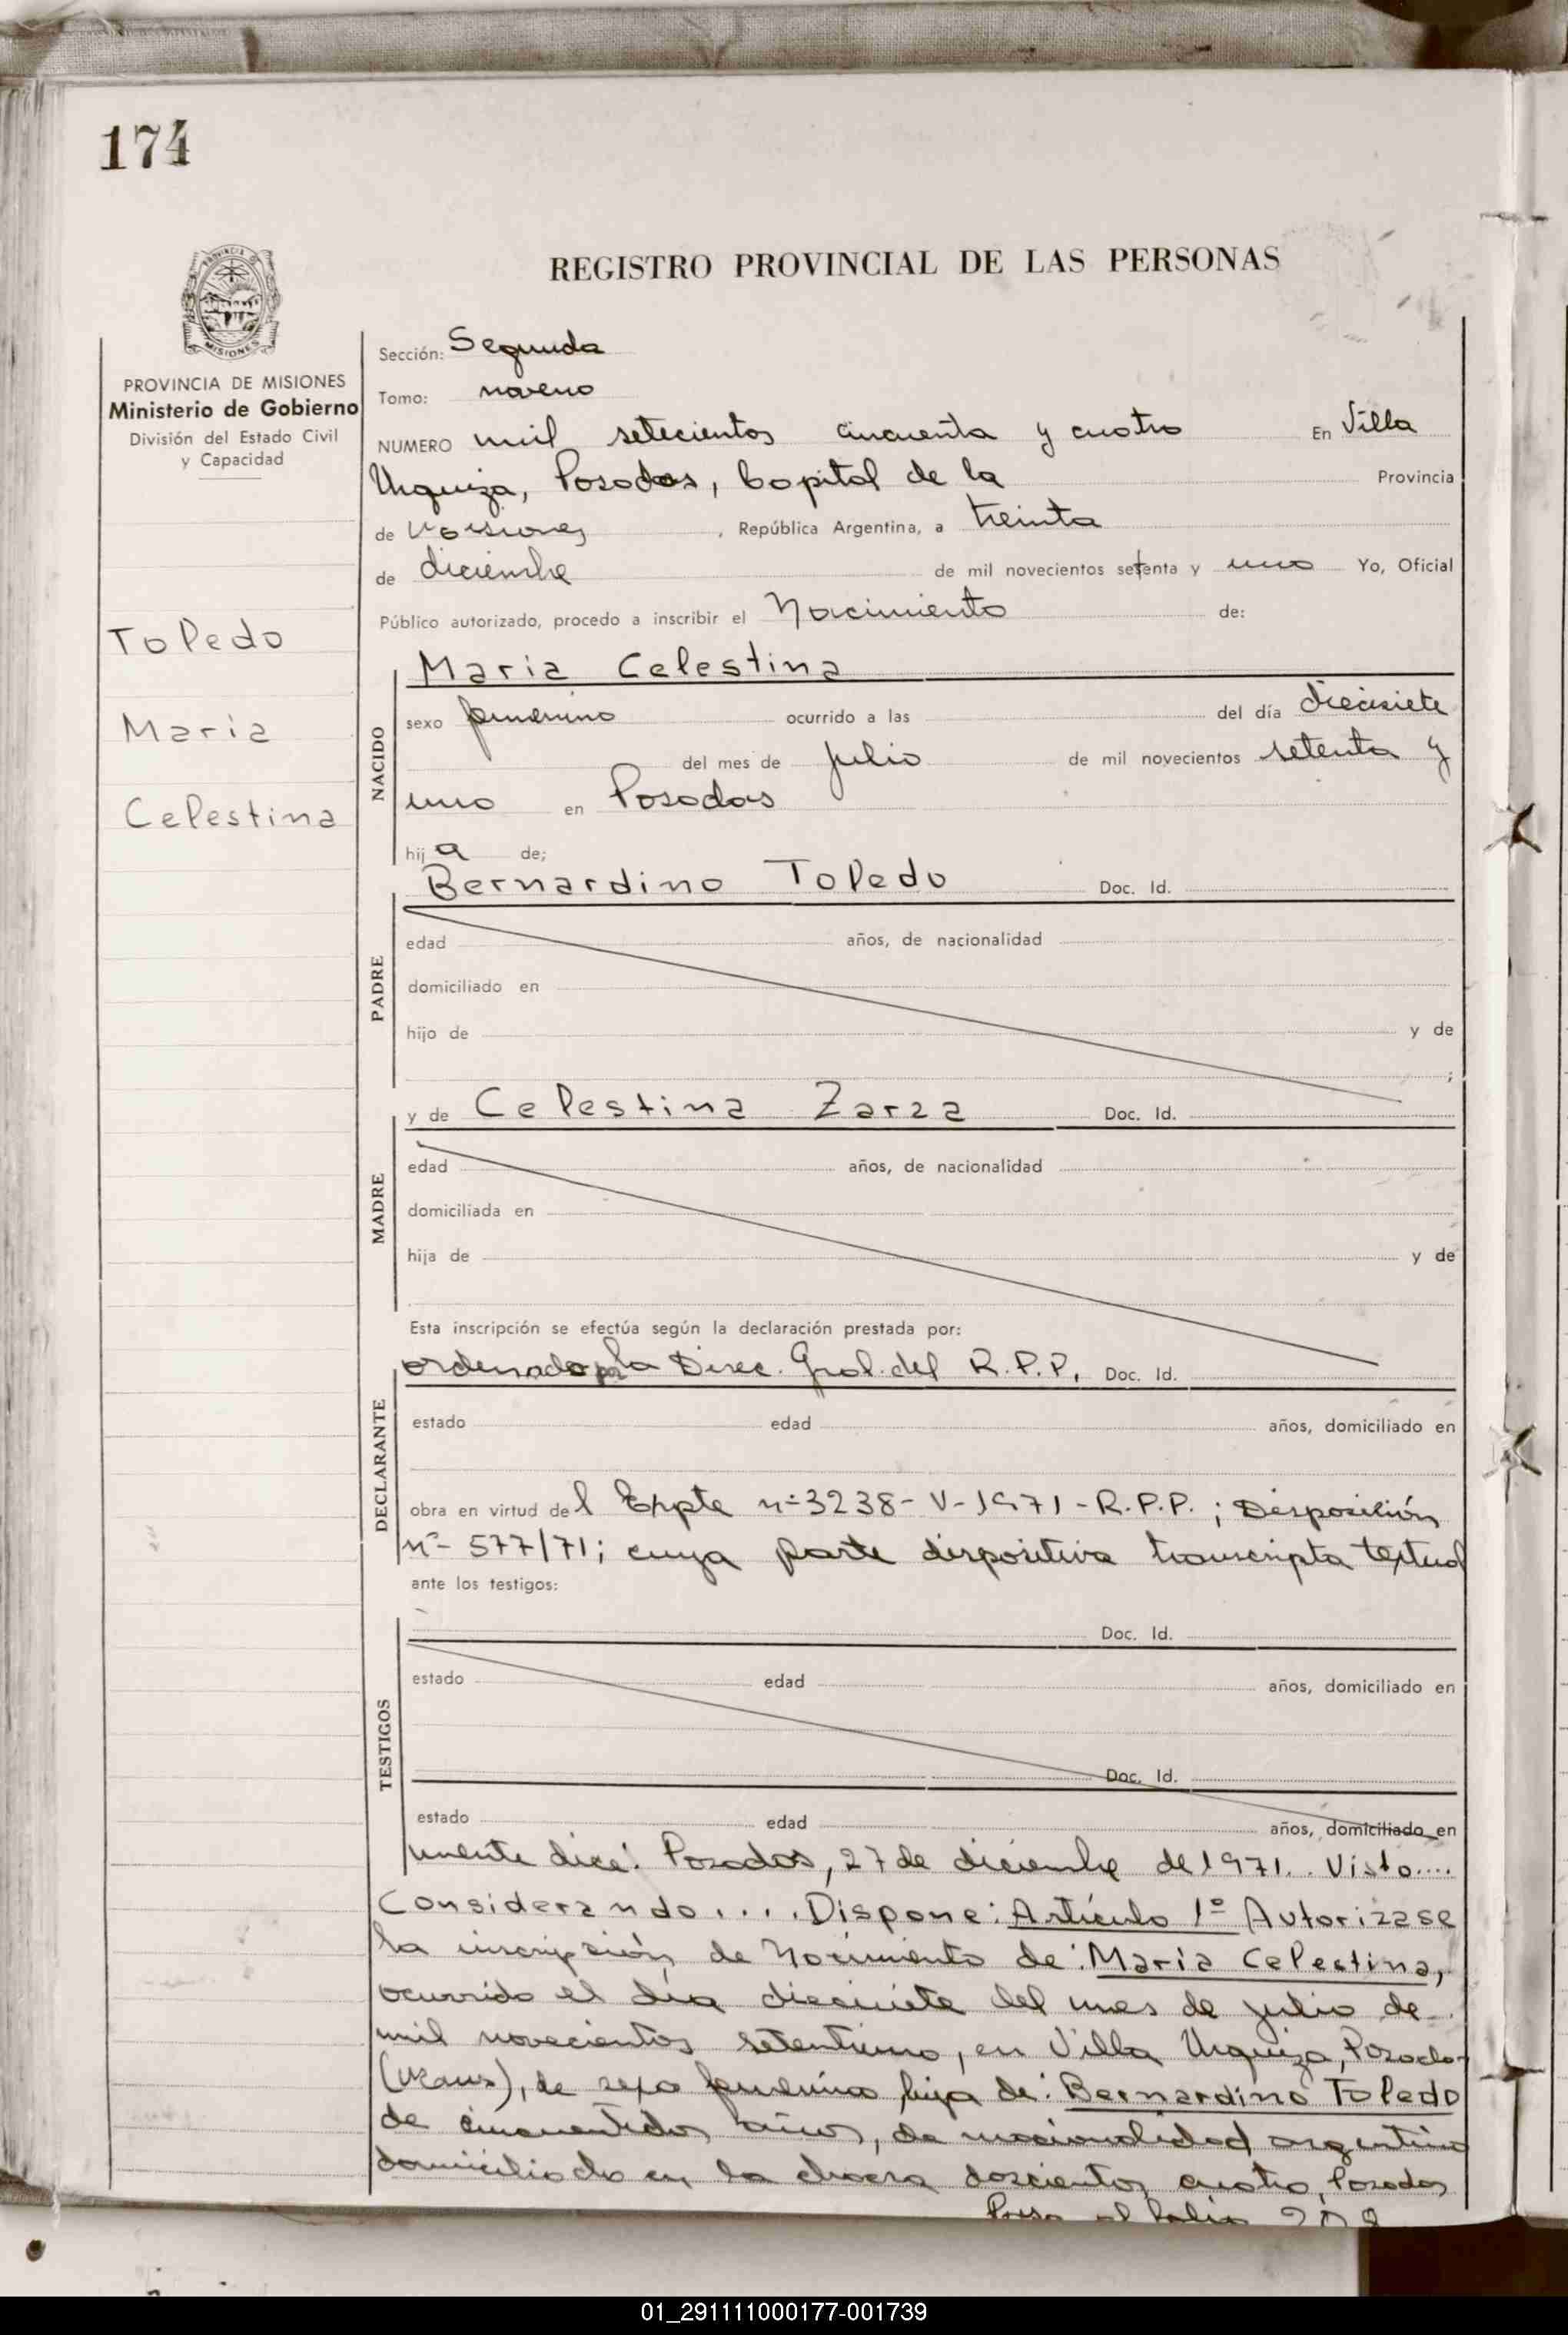 174
REGISTRO PROVINCIAL DE LAS PERSONAS
PROVINCIA DE MISIONES
Ministerio de Gobierno
División del Estado Civil
y Capacidad
Toledo
Maria
Celestina
Sección: Segunda
Tomo: noveno
NUMERO mil setecientos cincuenta y cuatro En Villa
Urquiza, Posadas, Capital de la Provincia
de Misiones, República Argentina, a treinta
de diciembre de mil novecientos setenta y uno Yo, Oficial
Público autorizado, procedo a inscribir el Nacimiento de:
NACIDO
Maria Celestina
sexo femenino ocurrido a las del día diecisiete
del mes de julio de mil novecientos setenta y
uno en Posadas
hija de;
PADRE
Bernardino Toledo Doc. Id.
edad años, de nacionalidad
domiciliado en
hijo de y de
;
MADRE
y de Celestina Zarza Doc. Id.
edad años, de nacionalidad
domiciliada en
hija de y de
Esta inscripción se efectúa según la declaración prestada por:
DECLARANTE
ordenado por la Direc. Gral. del R.P.P. Doc. Id.
estado edad años, domiciliado en
obra en virtud del Expte nº 3238-V-1971-R.P.P.; Disposición
nº 577/71; cuya parte dispositiva transcripta textual
ante los testigos:
TESTIGOS
Doc. Id.
estado edad años, domiciliado en
Doc. Id.
estado edad años, domiciliado en
mente dice: Posadas, 27 de diciembre de 1971.. Visto....
Considerando.... Dispone: Artículo 1º Autorizase
la inscripción de Nacimiento de: María Celestina,
ocurrido el día diecisiete del mes de julio de
mil novecientos setentiuno, en Villa Urquiza, Posadas
de sexo femenino hija de: Bernardino Toledo
de cincuentidos años, de nacionalidad argentino
domiciliado en la chacra doscientos cuatro, Posadas
Pasa al folio
01_291111000177-001739